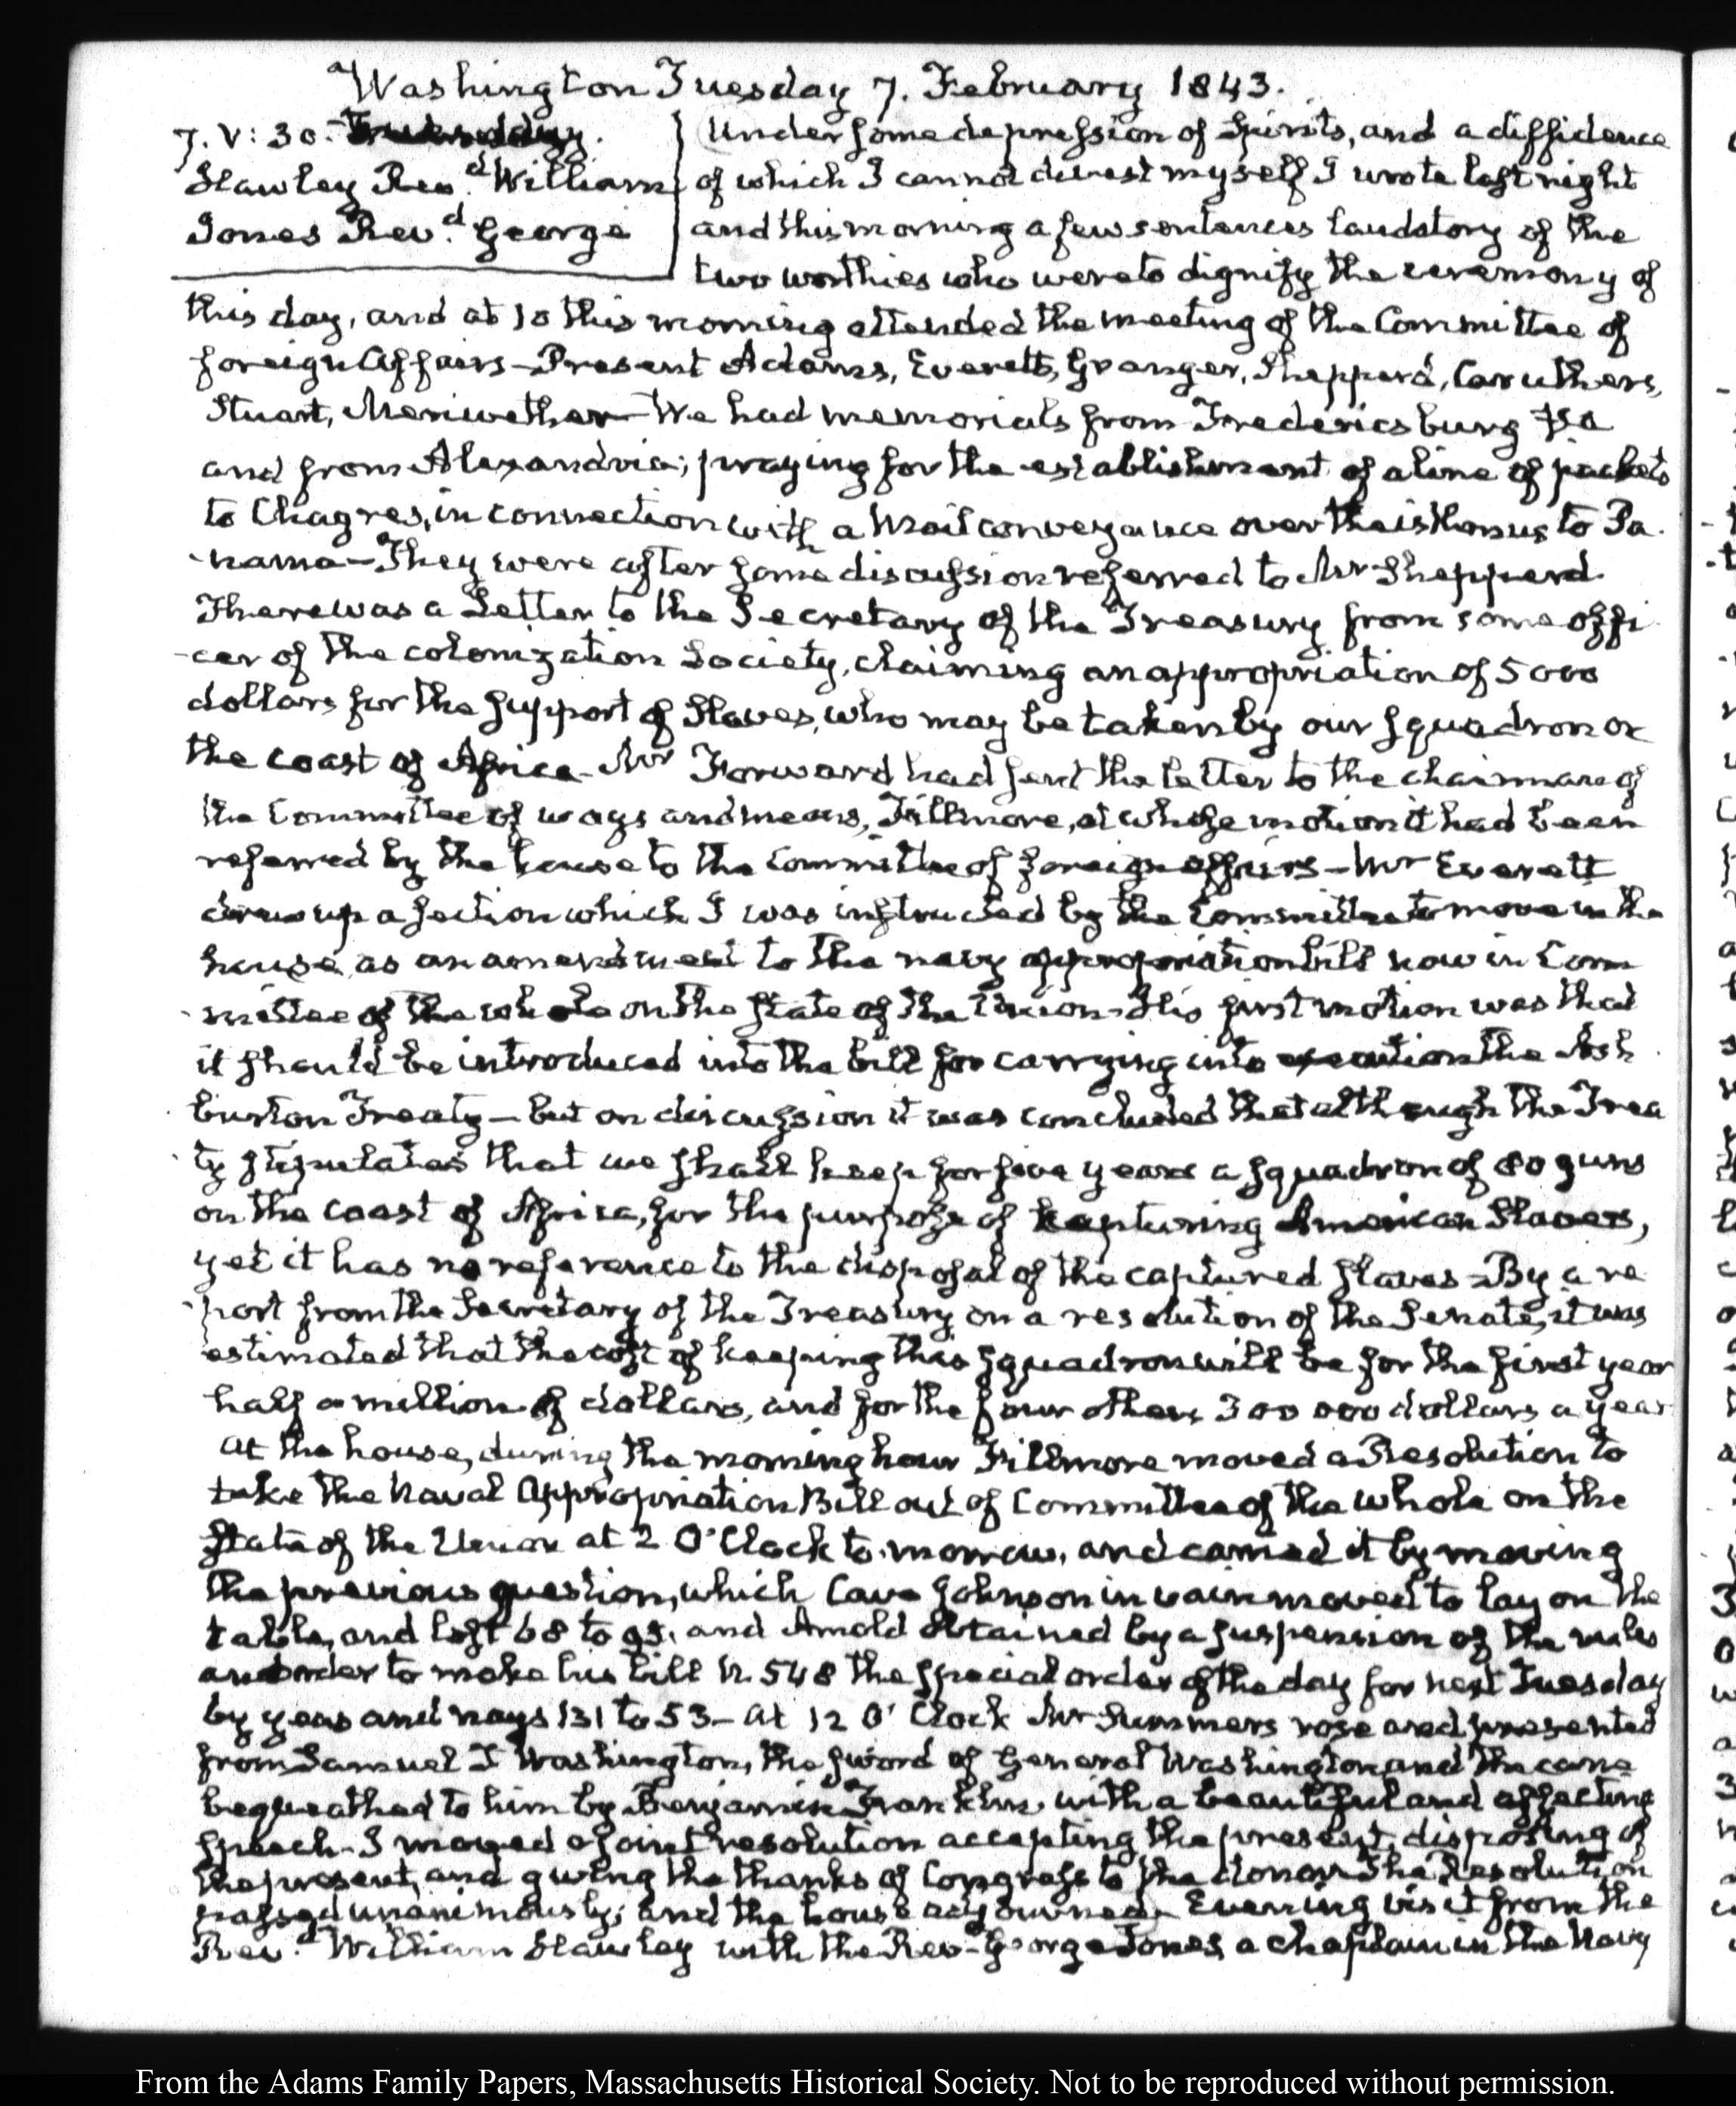 Washington Tuesday 7. February 1843.
7. V: 30.
Hawley Revd. William
Jones Revd. George
Under some depression of Spirits, and a diffidence
of which I cannot divest myself I wrote last night
and this morning a few sentences laudatory of the
two worthies who were to dignify the ceremony of
this day, and at 10 this morning attended the meeting of the Committee of
foreign Affairs – Present Adams, Everett, Granger, Shepperd, Caruthers,
Stuart, Meriwether – We had memorials from Fredericsburg Va
and from Alexandria; praying for the establishment of a line of packets
to Chagres, in connection with a Mail conveyance over the isthmus to Pa-
-nama – They were after some discussion referred to Mr Shepperd.
There was a Letter to the Secretary of the Treasury from some offi
-cer of the colonization Society, claiming an appropriation of 5000
dollars for the support of Slaves, who may be taken by our squadron on
the coast of Africa – Mr Forward had sent the letter to the chairman of
the Committee of ways and means, Fillmore, at whose motion it had been
referred by the house to the Committee of foreign affairs – Mr Everett
drew up a section which I was instructed by the Committee to move in the
house, as an amendment to the navy appropriation bill now in Com
-mittee of the whole on the State of the Union – His first motion was that
it should be introduced into the bill for carrying into execution the Ash
burton Treaty – but on discussion it was concluded that although the Trea
-ty stipulates that we shall keep for five years a squadron of 80 guns
on the coast of Africa, for the purpose of capturing American Slavers,
yet it has no reference to the disposal of the captured slaves – By a re
-port from the Secretary of the Treasury on a resolution of the Senate, it was
estimated that the cost of keeping this squadron will be for the first year
half a million of dollars, and for the four others 300 000 dollars a year
At the house, during the morning hour Fillmore moved a Resolution to
take the Naval Appropriation Bill out of Committee of the whole on the
State of the Union at 2 O'Clock to-morrow, and carried it by moving
the previous question, which Cave Johnson in vain moved to lay on the
table, and lost 68 to 95. and Arnold obtained by a suspension of the rules
an order to make his bill N. 548 the special order of the day for next Tuesday
by yeas and nays 131 to 53 – At 12 O'Clock Mr Summers rose and presented
from Samuel T Washington, the sword of General Washington and the cane
bequeathed to him by Benjamin Franklin, with a beautiful and affecting
speech – I moved a joint resolution accepting the present, disposing of
the present, and giving the thanks of Congress to the donor. The Resolution
passed unanimously; and the house adjourned. Evening visit from the
Revd. William Hawley with the Revd George Jones a chaplain in the Navy
From the Adams Family Papers, Massachusetts Historical Society. Not to be reproduced without permission.